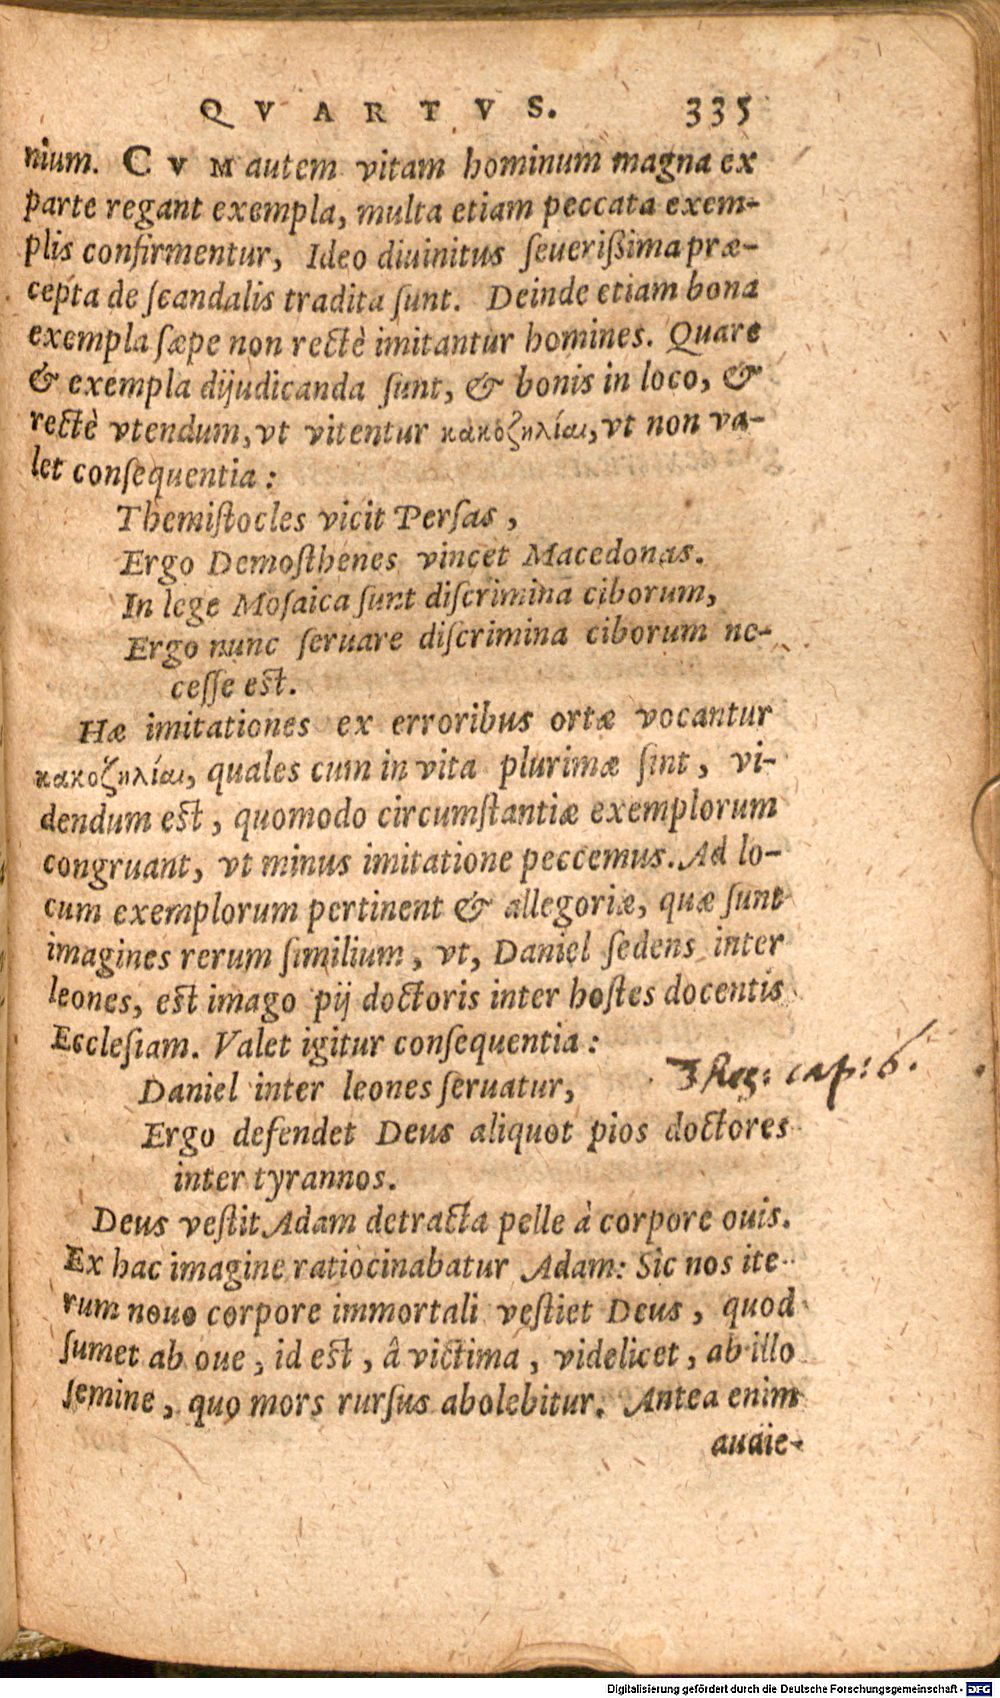 QVARTVS. 335
nium. CVM autem vitam hominum magna ex
parte regant exempla, multa etiam peccata exem-
plis confirmentur, Ideo diuinitus ſeuerißima præ-
cepta de ſcandalis tradita ſunt. Deinde etiam bona
exempla ſæpe non rectè imitantur homines. Quare
& exempla dijudicanda ſunt, & bonis in loco, &
rectè vtendum, vt vitentur κακοζηλίαι, vt non va-
let conſequentia:
Themiſtocles vicit Perſas,
Ergo Demoſthenes vincet Macedonas.
In lege Moſaica ſunt diſcrimina ciborum,
Ergo nunc ſeruare diſcrimina ciborum ne-
ceſſe eſt.
Hæ imitationes ex erroribus ortæ vocantur
κακοζηλίαι, quales cum in vita plurimæ ſint, vi-
dendum eſt, quomodo circumſtantiæ exemplorum
congruant, vt minus imitatione peccemus. Ad lo-
cum exemplorum pertinent & allegoriæ, quæ ſunt
imagines rerum ſimilium, vt, Daniel ſedens inter
leones, eſt imago pij doctoris inter hoſtes docentis
Eccleſiam. Valet igitur conſequentia:
Daniel inter leones ſeruatur,
3 Reg: cap: 6.
Ergo defendet Deus aliquot pios doctores
inter tyrannos.
Deus veſtit Adam detracta pelle à corpore ouis.
Ex hac imagine ratiocinabatur Adam: Sic nos ite-
rum nouo corpore immortali veſtiet Deus, quod
ſumet ab oue, id eſt, â victima, videlicet, ab illo
ſemine, quo mors rurſus abolebitur. Antea enim
audie-
Digitalisierung gefördert durch die Deutsche Forschungsgemeinschaft - DFG